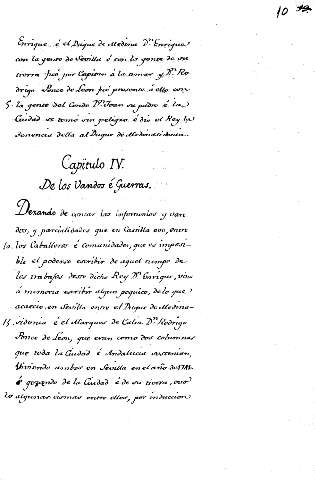 10
Enrique é el Duque de Medina Dn. Enrique
con la gente de Sevilla é con la gente de su
tierra fué por Capitan á la tomar y Dn. Ro
drigo Ponce de Leon fué presente á ello con
5. la gente del Conde Dn. Joan su padre é la
Ciudad se tomó sin peligro é dió el Rey la
tenencia della al Duque de Medinasidonia.
Capitulo IV.
De los Vandos é Guerras.
Dexando de contar las infortunios y van
dos, y parcialidades que en Castilla ovo, entre
10. los Caballeros é comunidades, que es imposi-
ble el poderse escribir de aquel tiempo de
los trabajos deste dicho Rey Dn. Enrique, vino
á memoria escribir algun poquito, de lo que
acaeció en Sevilla entre el Duque de Medina-
15. sidonia é el Marques de Caliz Dn. Rodrigo
Ponce de Leon, que eran como dos columnas
que toda la Ciudad é Andalucia sustenian,
Viviendo ambos en Sevilla en el año de
é gozando de la Ciudad é de su tierra, ovo
algunas cismas entre ellos, por induccion